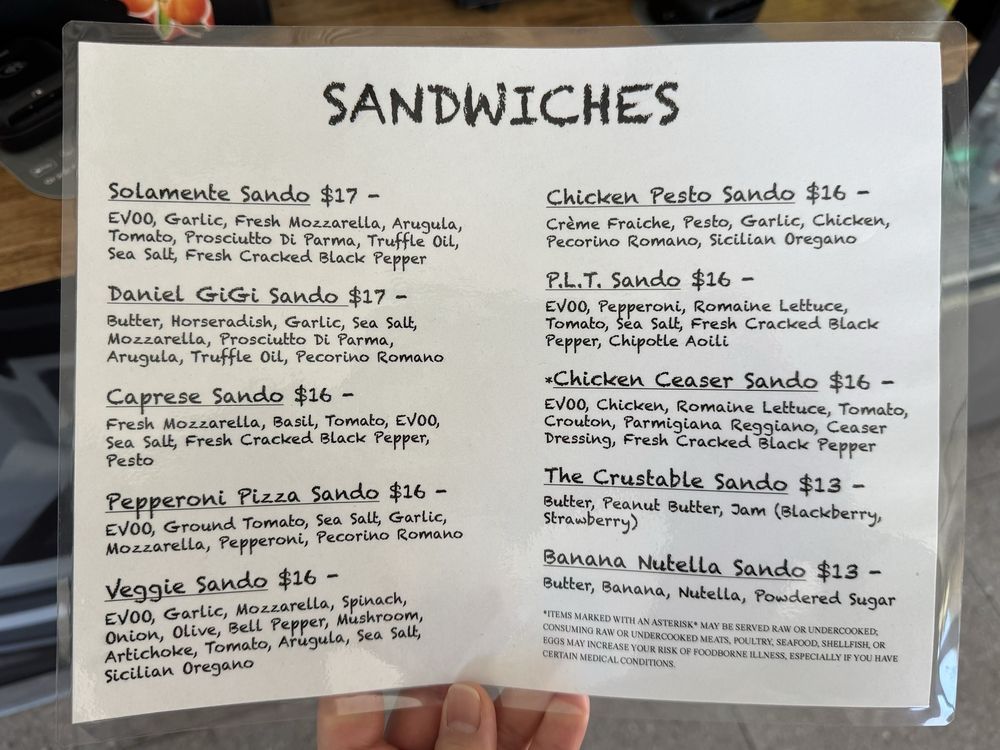 SANDWICHES
Solamente Sando $17 -
EVOO, Garlic, Fresh Mozzarella, Arugula,
Tomato, Prosciutto Di Parma, Truffle Oil,
Sea Salt, Fresh Cracked Black Pepper
Daniel GiGi Sando $17 -
Butter, Horseradish, Garlic, Sea Salt,
Mozzarella, Prosciutto Di Parma,
Arugula, Truffle Oil, Pecorino Romano
Caprese Sando $16 -
Fresh Mozzarella, Basil, Tomato, EVOO,
Sea Salt, Fresh Cracked Black Pepper,
Pesto
Pepperoni Pizza Sando $16 -
EVOO, Ground Tomato, Sea Salt, Garlic,
Mozzarella, Pepperoni, Pecorino Romano
Veggie Sando $16 -
EVOO, Garlic, Mozzarella, Spinach,
Onion, Olive, Bell Pepper, Mushroom,
Artichoke, Tomato, Arugula, Sea Salt,
Sicilian Oregano
Chicken Pesto Sando $16 -
Crème Fraiche, Pesto, Garlic, Chicken,
Pecorino Romano, Sicilian Oregano
P.L.T. Sando $16 -
EVOO, Pepperoni, Romaine Lettuce,
Tomato, Sea Salt, Fresh Cracked Black
Pepper, Chipotle Aoili
*Chicken Ceaser Sando $16 -
EVOO, Chicken, Romaine Lettuce, Tomato,
Crouton, Parmigiana Reggiano, Ceaser
Dressing, Fresh Cracked Black Pepper
The Crustable Sando $13 -
Butter, Peanut Butter, Jam (Blackberry,
Strawberry)
Banana Nutella Sando $13 -
Butter, Banana, Nutella, Powdered Sugar
*ITEMS MARKED WITH AN ASTERISK* MAY BE SERVED RAW OR UNDERCOOKED;
CONSUMING RAW OR UNDERCOOKED MEATS, POULTRY, SEAFOOD, SHELLFISH, OR
EGGS MAY INCREASE YOUR RISK OF FOODBORNE ILLNESS, ESPECIALLY IF YOU HAVE
CERTAIN MEDICAL CONDITIONS.